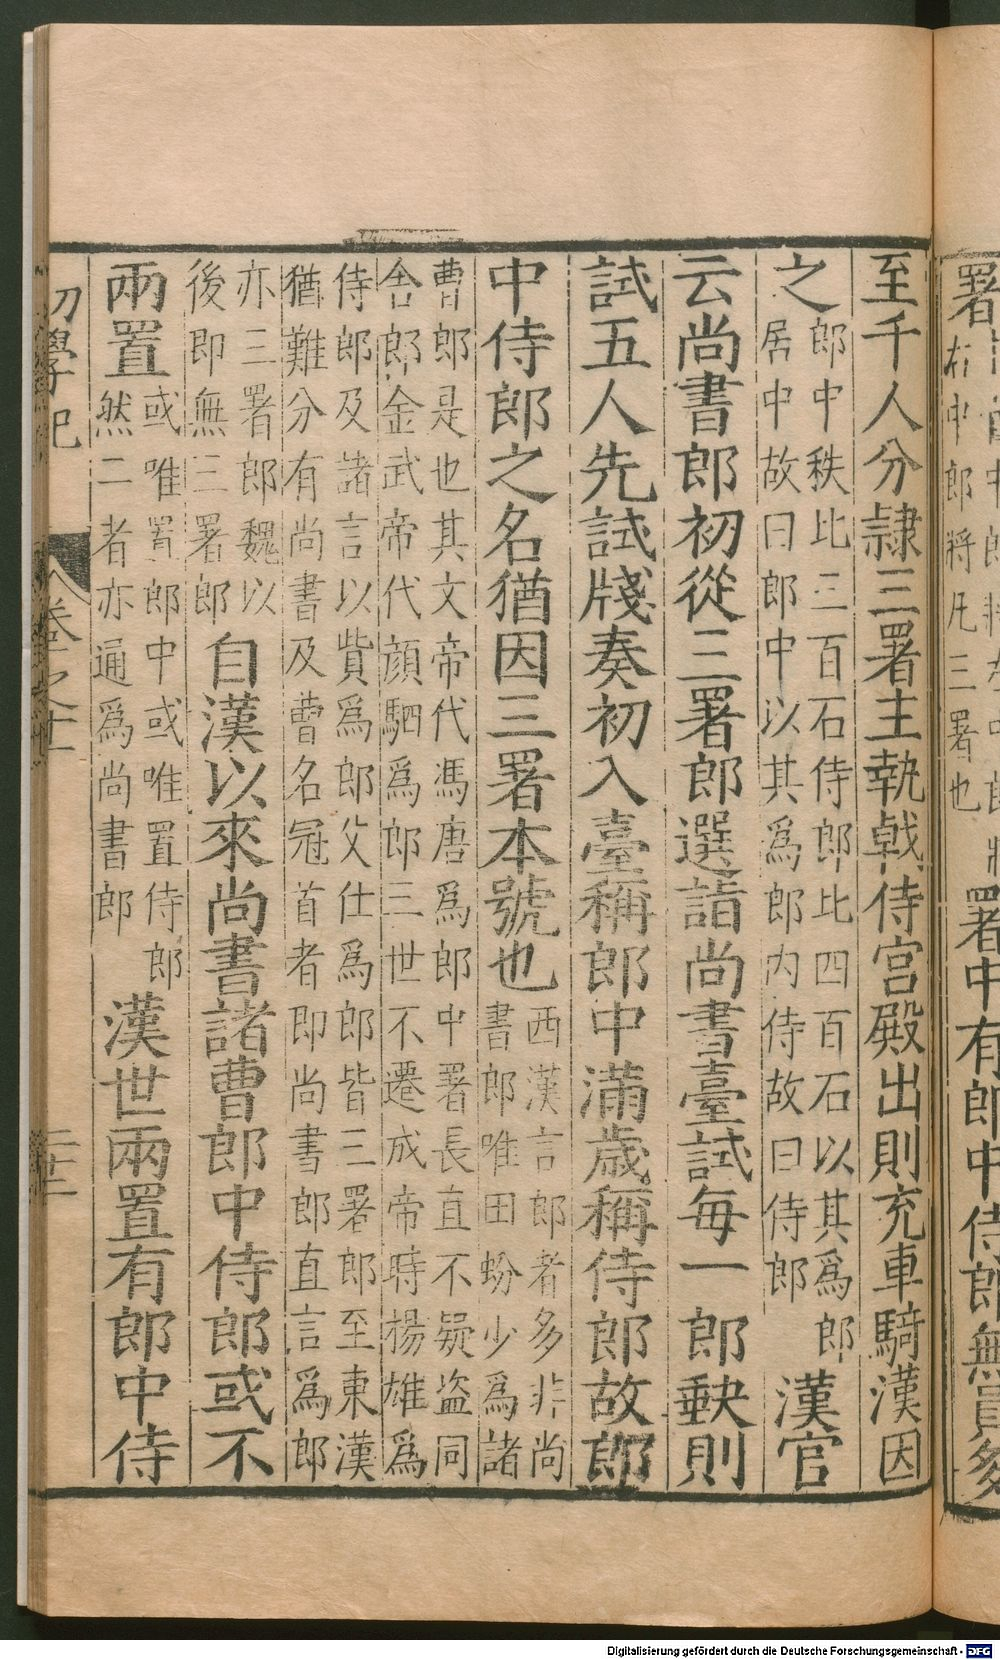 署中有郎中侍郎無員多
至千人分隷三署主執戟侍宮殿出則充車騎漢因
之
郎中秩比三百石侍郎比四百石以其爲郎
居中故曰郎中以其爲郎内侍故曰侍郎
漢官
云尚書郎初從三署郎選詣尚書臺試每一郎缺則
試五人先試牋奏初入臺稱郎中滿歲稱侍郎故郎
中侍郎之名猶因三署本號也
西漢言郎者多非尚
書郎唯田蚡少爲諸
曹郎是也其文帝代馮唐爲郎中署長直不疑盜同
舍郎金武帝代顔駟爲郎三世不遷成帝時揚雄爲
侍郎及諸言以貲爲郎父仕爲郎皆三署郎至東漢
猶難分有尚書及曹名冠首者即尚書郎直言爲郎
亦三署郎魏以
後即無三署郎
自漢以來尚書諸曹郎中侍郎或不
兩置
或唯置郎中或唯置侍郎
然二者亦通爲尚書郎
漢世兩置有郎中侍
初學記
卷之十一
二十二
Digitalisierung gefördert durch die Deutsche Forschungsgemeinschaft - DFG